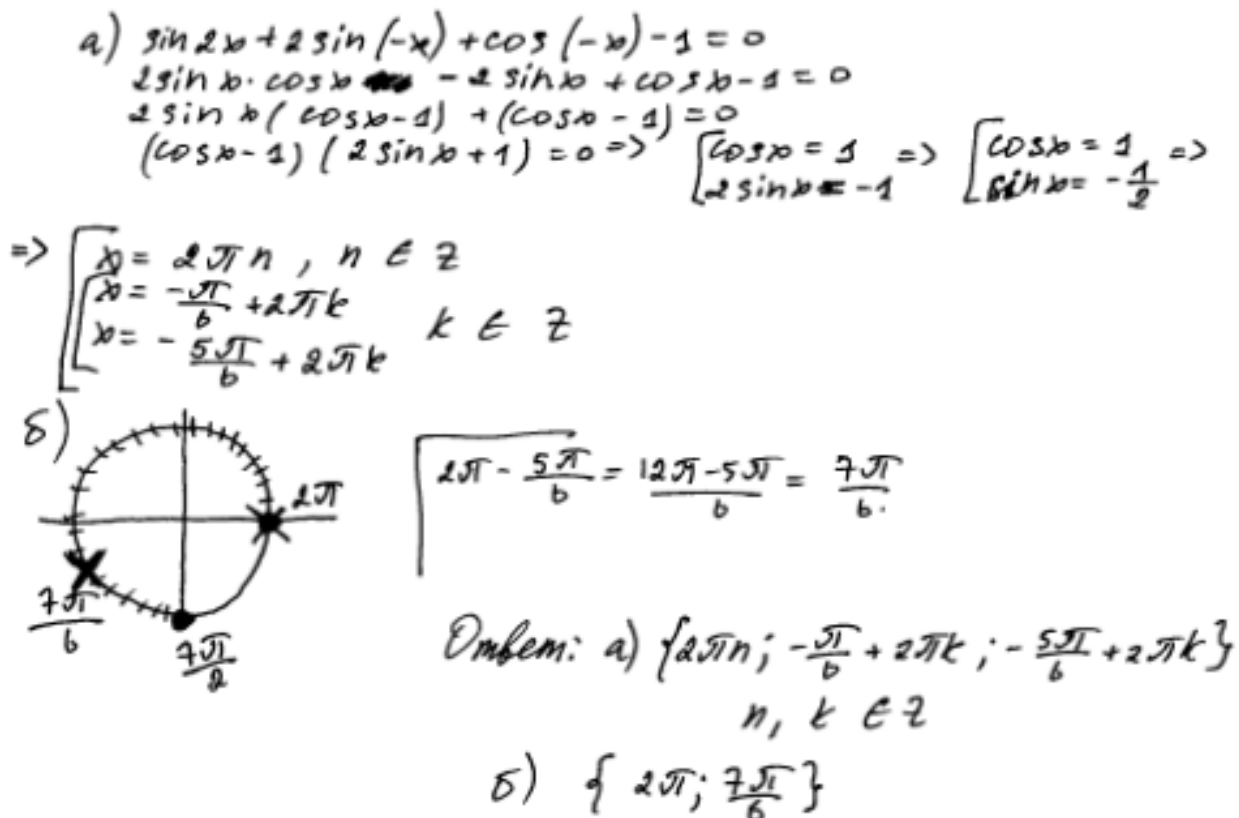 а) sin2x + 2sin(-x) + cos(-x) - 1 = 0
2sinx·cosx - 2sinx + cosx - 1 = 0
2sinx(cosx - 1) + (cosx - 1) = 0
(cosx - 1)(2sinx + 1) = 0 => [cosx = 1 => [cosx = 1 =>
[2sinx = -1 [sinx = -1/2
=> [x = 2πn, n ∈ Z
[x = -π/6 + 2πk
x = -5π/6 + 2πk k ∈ Z
б)
2π
2π - 5π/6 = (12π - 5π)/6 = 7π/6.
7π/6
7π/2
Ответ: а) {2πn; -π/6 + 2πk; -5π/6 + 2πk}
n, k ∈ Z
б) {2π; 7π/6}